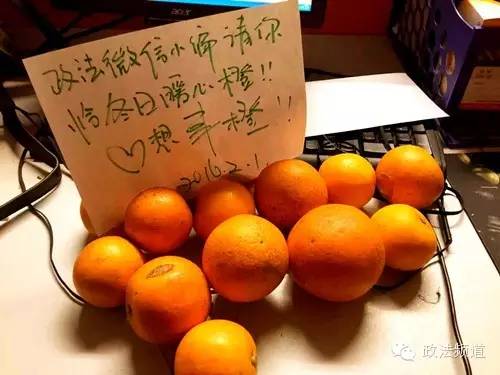 acer
政法微信小编请你
恰冬日暖心橙!!
♡想事橙!!
2016.2.1.
政法频道